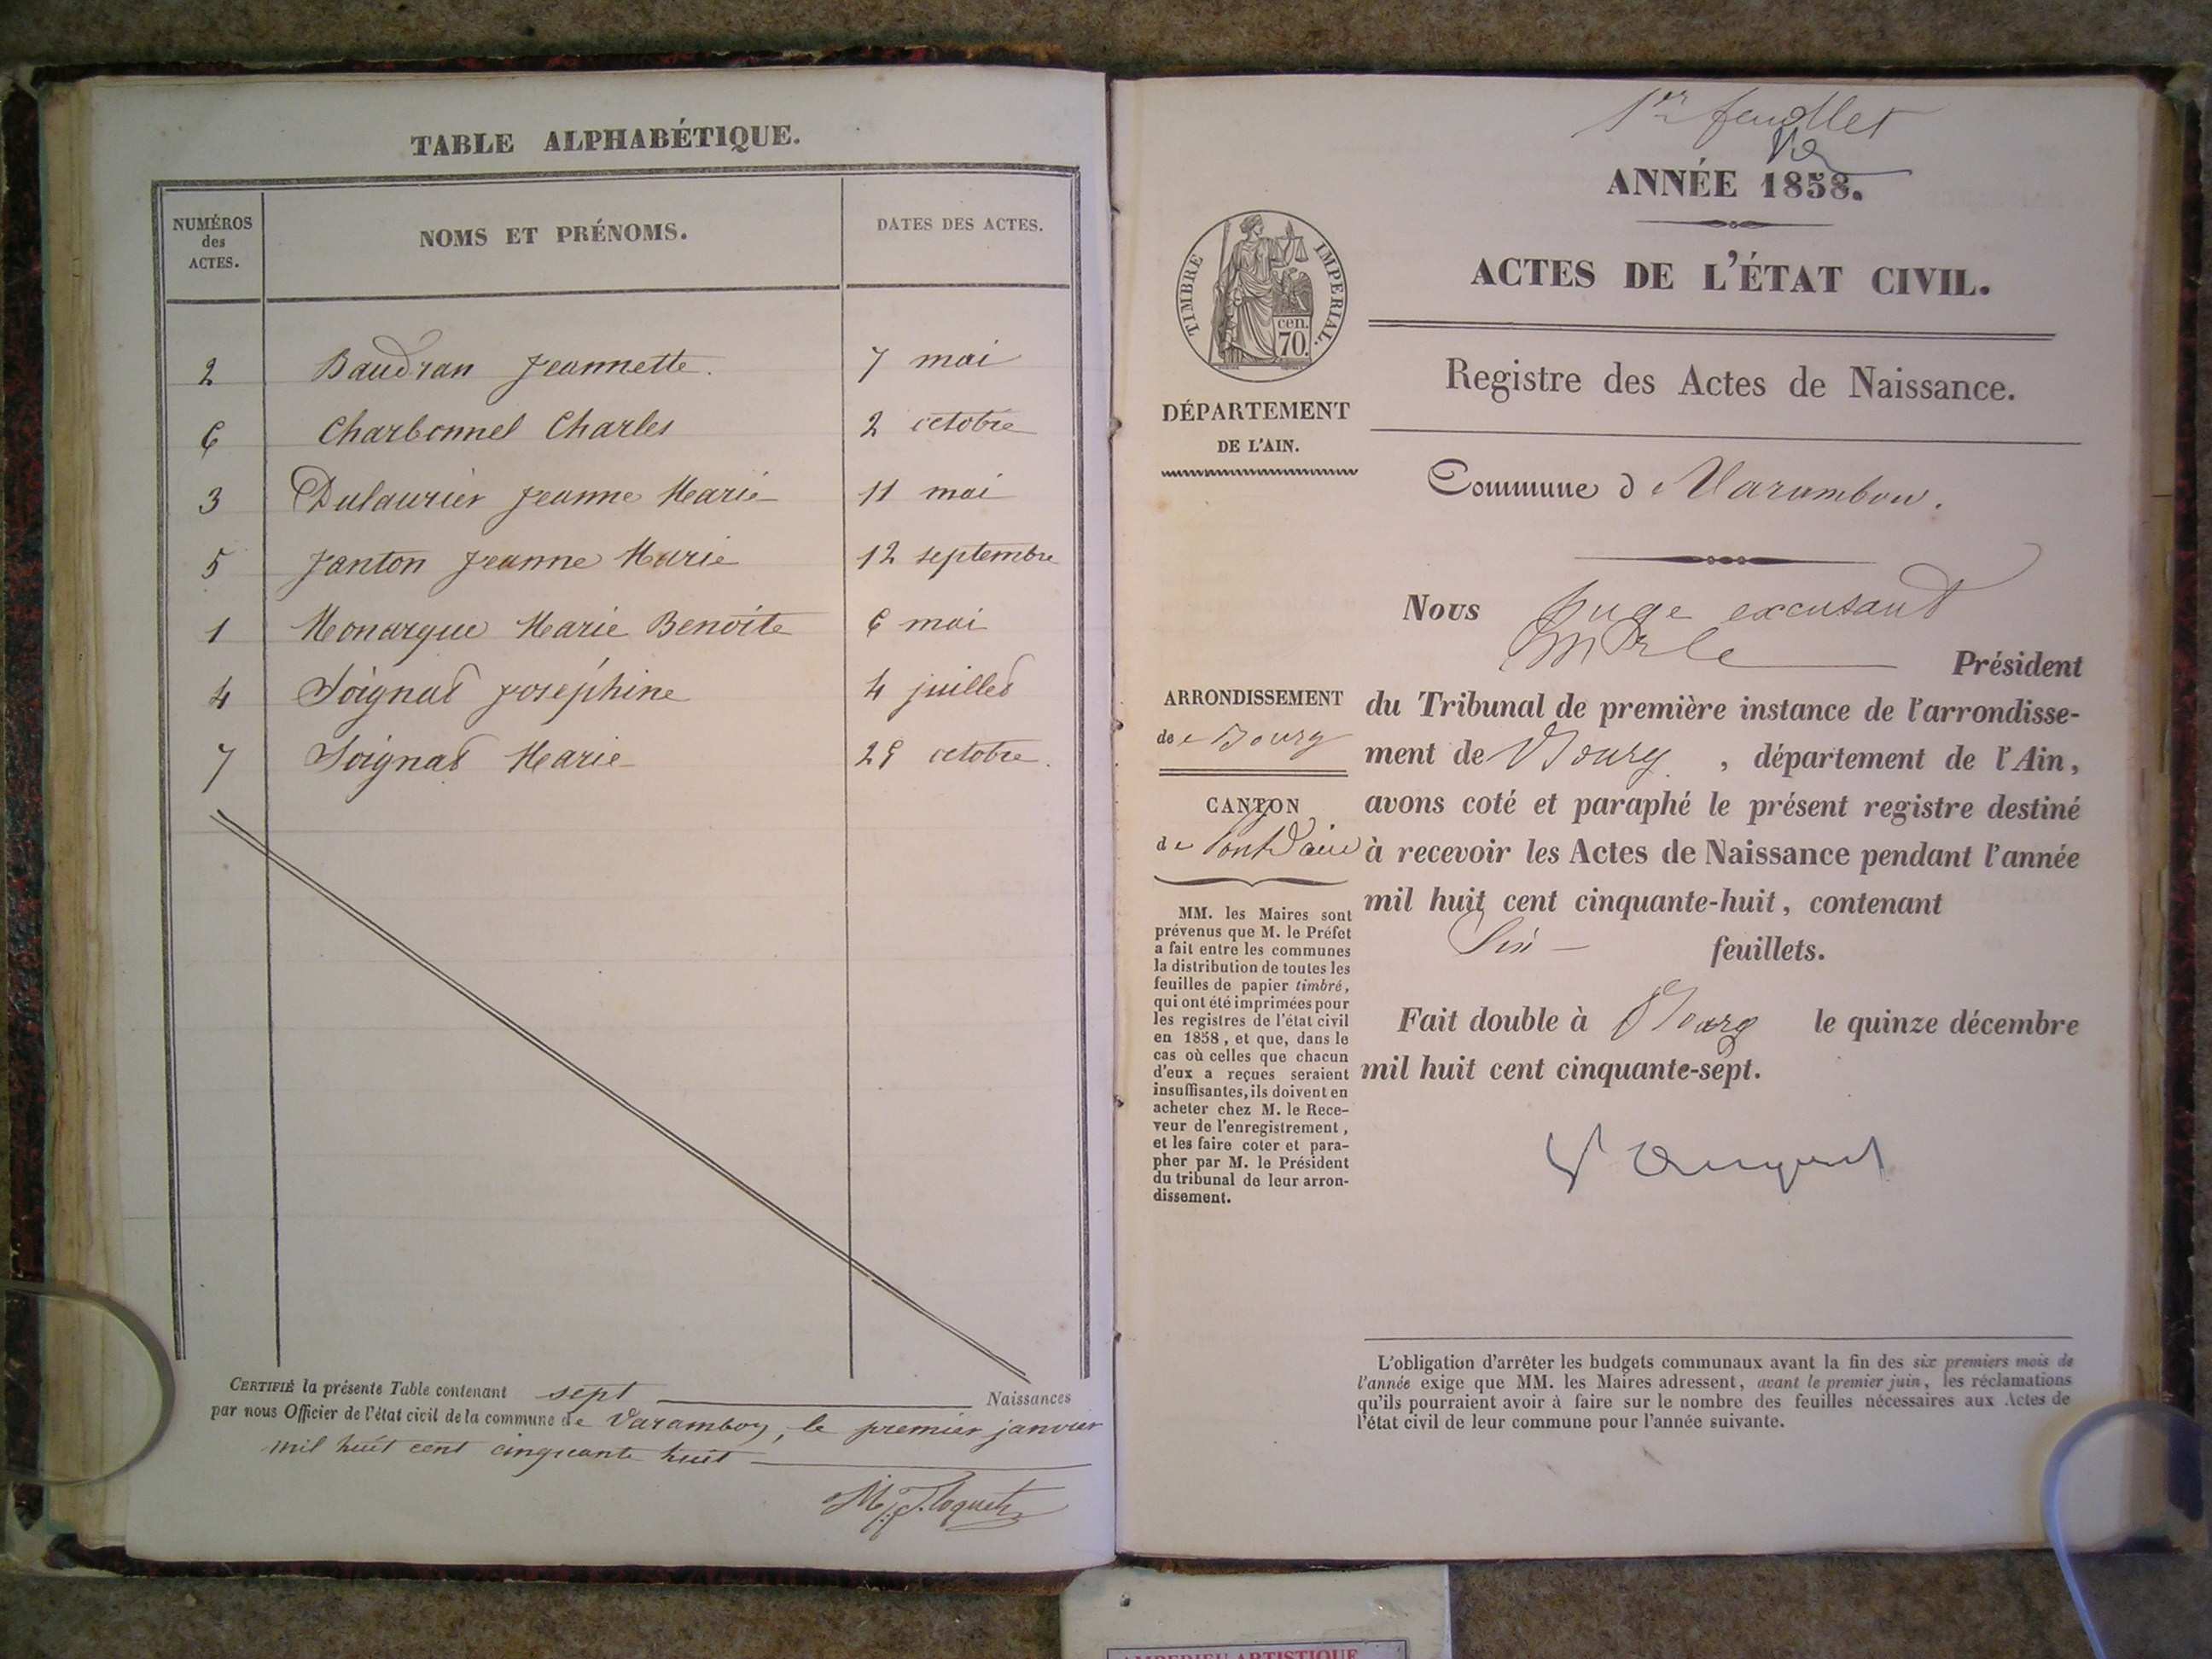 TABLE ALPHABÉTIQUE.
NUMÉROS
des
ACTES.
NOMS ET PRÉNOMS.
DATES DES ACTES.
2 Baudran Jeannette. 7 mai
6 Charbonnel Charles 2 octobre
3 Dulaurier Jeanne Marie 11 mai
5 Janton Jeanne Marie 12 septembre
1 Monarque Marie Benoite 6 mai
4 Soignat Joséphine 4 juillet
7 Soignat Marie octobre.
CERTIFIÉ la présente Table contenant sept Naissances
par nous Officier de l'état civil de la commune de Varambon, le premier janvier
mil huit cent cinquante huit
1er feuillet
ANNÉE 1858.
ACTES DE L'ÉTAT CIVIL.
Registre des Actes de Naissance.
Commune d Varambon.
TIMBRE IMPERIAL.
cen.
70.
DÉPARTEMENT
DE L'AIN.
ARRONDISSEMENT
de Bourg
CANTON
de Pont d'ain
MM. les Maires sont
prévenus que M. le Préfet
a fait entre les communes
la distribution de toutes les
feuilles de papier timbré,
qui ont été imprimées pour
les registres de l'état civil
en 1858, et que, dans le
cas où celles que chacun
d'eux a reçues seraient
insuffisantes, ils doivent en
acheter chez M. le Rece-
veur de l'enregistrement,
et les faire coter et para-
pher par M. le Président
du tribunal de leur arron-
dissement.
Nous juge excusant
Mr le Président
du Tribunal de première instance de l'arrondisse-
ment de Bourg, département de l'Ain,
avons coté et paraphé le présent registre destiné
à recevoir les Actes de Naissance pendant l'année
mil huit cent cinquante-huit, contenant
Six feuillets.
Fait double à Bourg le quinze décembre
mil huit cent cinquante-sept.
L'obligation d'arrêter les budgets communaux avant la fin des six premiers mois de
l'année exige que MM. les Maires adressent, avant le premier juin, les réclamations
qu'ils pourraient avoir à faire sur le nombre des feuilles nécessaires aux Actes de
l'état civil de leur commune pour l'année suivante.